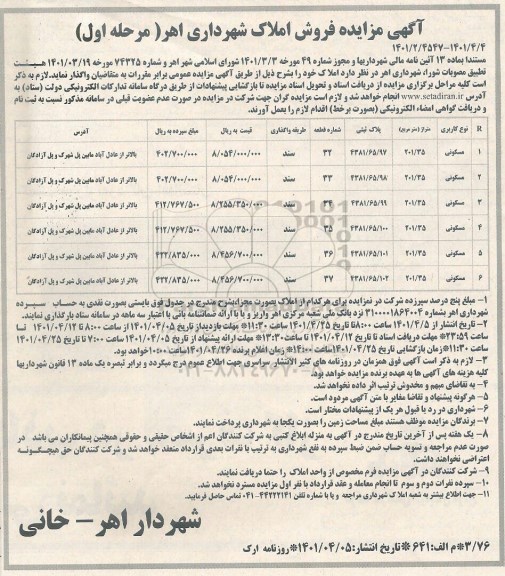 آگهی مزایده فروش املاک شهرداری اهر( مرحله اول)
۱۴۰۱/۲/۴۵۴۷-۱۴۰۱/۴/۴
مستندا بماده ۱۳ آئین نامه مالی شهرداریها و مجوز شماره ۴۹ مورخه ۱۴۰۱/۳/۳ شورای اسلامی شهر اهر و شماره ۷۴۳۲۵ مورخه ۱۴۰۱/۰۳/۱۹ هیئت
تطبیق مصوبات شورا، شهرداری اهر در نظر دارد املاک خود را بشرح ذیل از طریق آگهی مزایده عمومی برابر مقررات به متقاضیان واگذار نماید. لازم به ذکر
است کلیه مراحل برگزاری مزایده از دریافت اسناد و تحویل اسناد مزایده تا بازگشایی پیشنهادات از طریق درگاه سامانه تدارکات الکترونیکی دولت (ستاد) به
آدرس www.setadiran.ir انجام خواهد شد و لازم است مزایده گران جهت شرکت در مزایده در صورت عدم عضویت قبلی در سامانه مذکور نسبت به ثبت نام
و دریافت گواهی امضاء الکترونیکی (بصورت برخط) اقدام لازم را بعمل آورند.
R نوع کاربری متراژ (متر مربع) پلاک ثبتی شماره قطعه طریقه واگذاری قیمت به ریال مبلغ سپرده به ریال آدرس
۱ مسکونی ۲۰۱/۳۵ ۴۳۸۱/۶۵/۹۷ ۳۲ سند ۸/۰۵۴/۰۰۰/۰۰۰ ۴۰۲/۷۰۰/۰۰۰ بالاتر از عادل آباد مابین پل شهرک و پل آزادگان
۲ مسکونی ۲۰۱/۳۵ ۴۳۸۱/۶۵/۹۸ ۳۳ سند ۸/۰۵۴/۰۰۰/۰۰۰ ۴۰۲/۷۰۰/۰۰۰ بالاتر از عادل آباد مابین پل شهرک و پل آزادگان
۳ مسکونی ۲۰۱/۳۵ ۴۳۸۱/۶۵/۹۹ ۳۴ سند ۸/۲۵۵/۳۵۰/۰۰۰ ۴۱۲/۷۶۷/۵۰۰ بالاتر از عادل آباد مابین پل شهرک و پل آزادگان
۴ مسکونی ۲۰۱/۳۵ ۴۳۸۱/۶۵/۱۰۰ ۳۵ سند ۸/۲۵۵/۳۵۰/۰۰۰ ۴۱۲/۷۶۷/۵۰۰ بالاتر از عادل آباد مابین پل شهرک و پل آزادگان
۵ مسکونی ۲۰۱/۳۵ ۴۳۸۱/۶۵/۱۰۱ ۳۶ سند ۸/۴۵۶/۷۰۰/۰۰۰ ۴۲۲/۸۳۵/۰۰۰ بالاتر از عادل آباد مابین پل شهرک و پل آزادگان
۶ مسکونی ۲۰۱/۳۵ ۴۳۸۱/۶۵/۱۰۲ ۳۷ سند ۸/۴۵۶/۷۰۰/۰۰۰ ۴۲۲/۸۳۵/۰۰۰ بالاتر از عادل آباد مابین پل شهرک و پل آزادگان
۱- مبلغ پنج درصد سپرزده شرکت در نمزایده برای هرکدام از املاک بصورت مجزا بشرح مندرج در جدول فوق بایستی بصورت نقدی به حساب سپرده
شهرداری اهر بشماره ۳۱۰۰۰۰۱۸۶۴۰۰۴ نزد بانک ملی شعبه مرکزی اهر واریز و یا با ارائه ضمانتنامه بانکی با اعتبار سه ماهه در سامانه ستاد بارگذاری نمایند.
۲- تاریخ انتشار از ۱۴۰۱/۴/۵ ساعت ۸:۰۰ تا تاریخ ۱۴۰۱/۴/۲۵ ساعت ۱۱:۳۰* مهلت بازدید از تاریخ ۱۴۰۱/۰۴/۰۵ از ساعت ۸:۰۰ تا ۱۴۰۱/۰۴/۱۲ تا
ساعت ۲۳:۵۹* مهلت دریافت اسناد تا تاریخ ۱۴۰۱/۰۴/۱۲ تا ساعت ۱۳:۳۰* مهلت ارائه پیشنهاد از تاریخ ۱۴۰۱/۰۴/۰۵ ساعت ۷:۰۰ تا تاریخ ۱۴۰۱/۰۴/۲۵
ساعت ۱۱:۳۰* زمان بازگشایی تاریخ ۱۴۰۱/۰۴/۲۵ ساعت ۱۳:۰۰* زمان اعلام برنده ۱۴۰۱/۰۴/۲۶ ساعت ۱۰:۰۰ خواهد بود.
۳- لازم به ذکر است آگهی فوق همزمان در روزنامه های کثیر الانتشار سراسری جهت اطلاع عموم درج میگردد و برابر تبصره یک ماده ۱۳ قانون شهرداریها
کلیه هزینه های آگهی ها به عهده برنده مزایده خواهد بود.
۴- به تقاضای مبهم و مخدوش ترتیب اثر داده نخواهد شد.
۵- هرگونه پیشنهاد و تقاضا مغایر با متن آگهی مردود است.
۶- شهرداری در رد یا قبول هر یک از پیشنهادات مختار است.
۷- برندگان مزایده موظف هستند مبلغ مساحت زمین را بصورت یکجا به شهرداری پرداخت نمایند.
۸- یک هفته پس از آخرین تاریخ مندرج در آگهی به منزله ابلاغ کتبی به شرکت کنندگان اعم از اشخاص حقیقی و حقوقی همچنین پیمانکاران می باشد در
صورت عدم مراجعه و تسویه حساب ضمن ضبط سپرده به نفع شهرداری به ترتیب با نفرات بعدی قرارداد منعقد خواهد شد و شرکت کنندگان حق هیچگونه
اعتراضی نخواهند داشت.
۹- شرکت کنندگان در آگهی مزایده فرم مخصوص از واحد املاک را حتما دریافت نمایند.
۱۰- سپرده نفرات دوم و سوم تا انجام معامله و عقد قرارداد با نفر اول مزایده مسترد نخواهد شد.
۱۱- جهت اطلاع بیشتر به شعبه املاک شهرداری مراجعه و یا با شماره تلفن ۴۴۲۲۲۱۴۱-۰۴۱ تماس حاصل فرمایید.
شهردار اهر- خانی
۳/۷۶*م الف:۶۴۱ *تاریخ انتشار:۱۴۰۱/۰۴/۰۵*روزنامه ارک